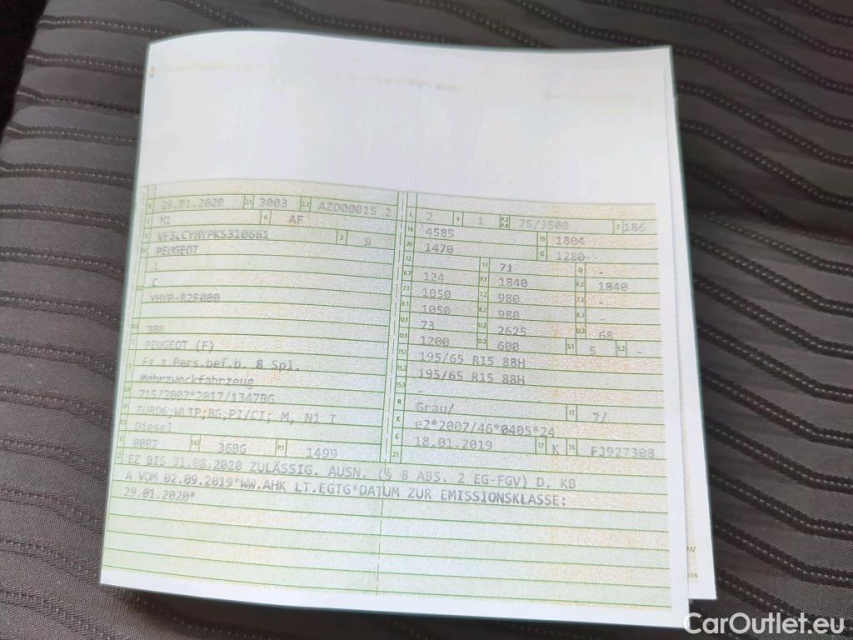 29.01.2020 3003 AZD00015 2
M1 AF
VF3LCYHYPKS310661 9
PEUGEOT
L
C
308
PEUGEOT (F)
Fz.z.Pers.bef.b. 8 Spl.
Mehrzweckfahrzeug
715/2007*2017/1347BG
EURO6;WLTP;BG;PI/CI; M, N1 I
Diesel
0002 36BG 1499
2 1 75/3500 186
4585 1804
1470 1280-
71 -
124 1840 1840
1050 980 -
1050 980 -
73 2625 68
1200 600 5 -
195/65 R15 88H
195/65 R15 88H
-
Grau/ 7/
e2*2007/46*0405*24
18.01.2019 K FJ927308
EZ BIS 31.08.2020 ZULÄSSIG. AUSN. (§ 8 ABS. 2 EG-FGV) D. KB
A VOM 02.09.2019*WW.AHK LT.EGTG*DATUM ZUR EMISSIONSKLASSE:
29.01.2020*
CarOutlet.eu